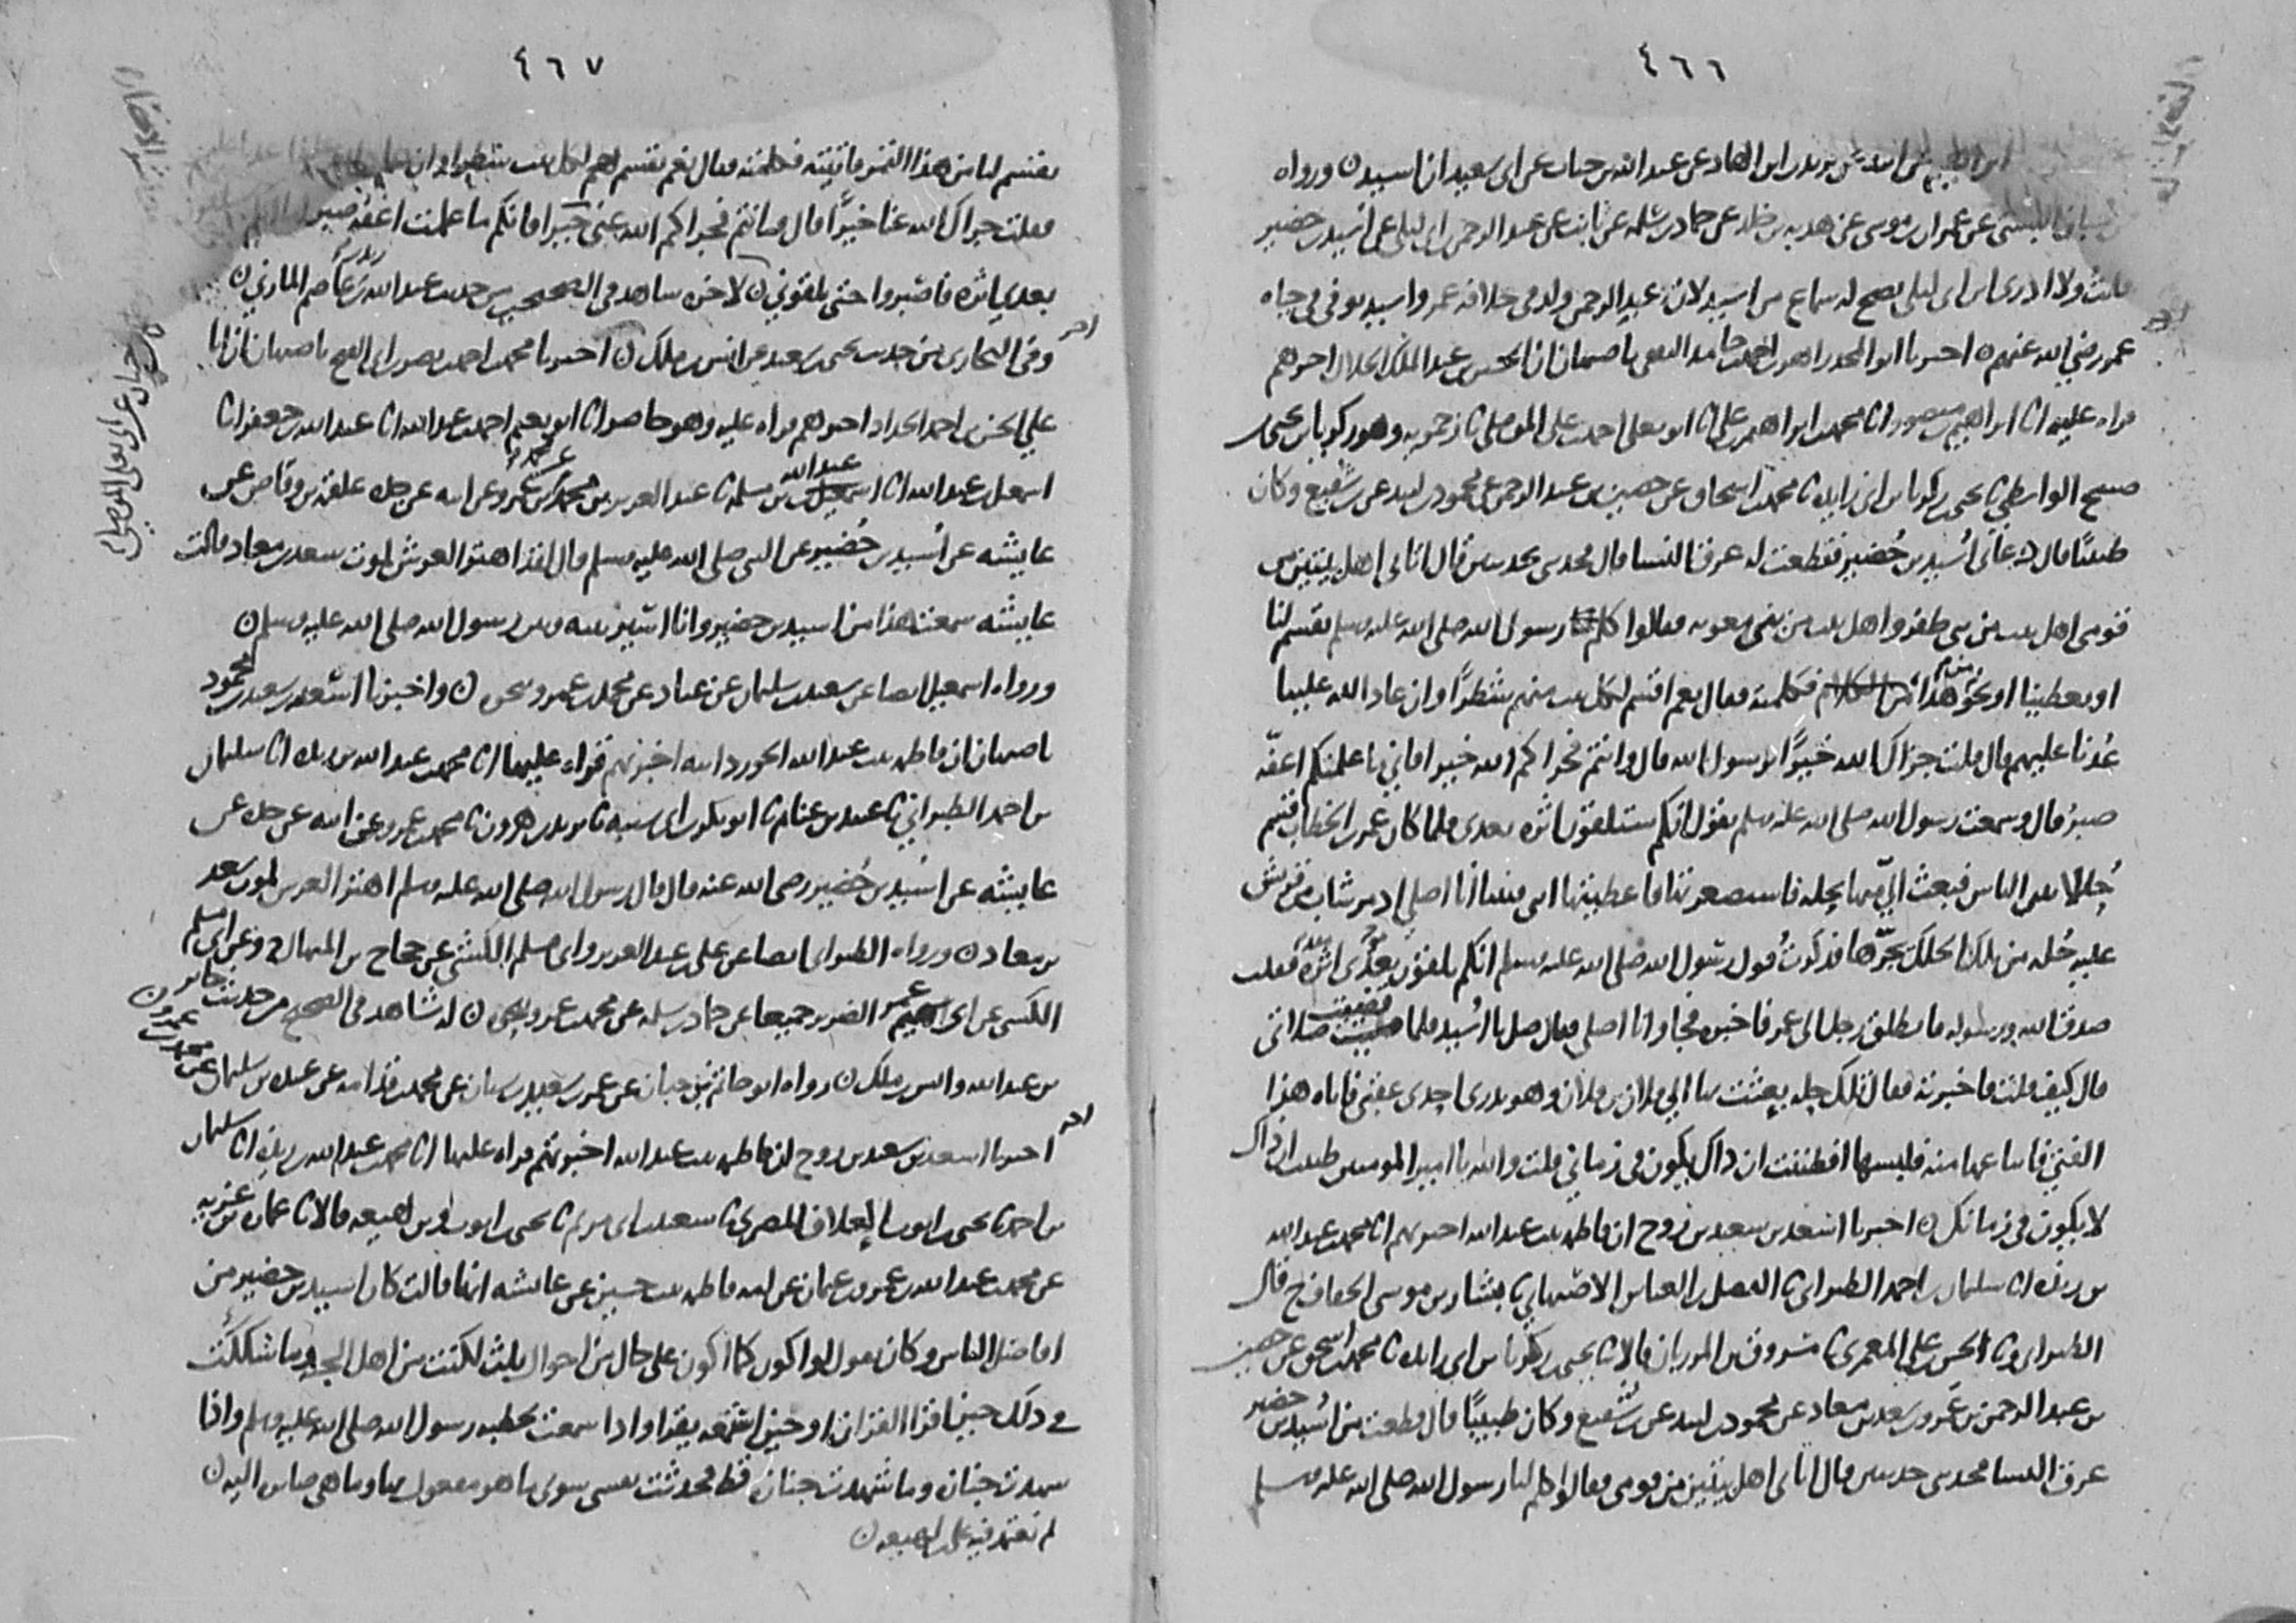 ٤٦٦
عن يزيد بن الهاد عن عبد الله بن خباب عن ابى سعيد ان اسيد ن ورواه
عن عمران بن موسى عن هدبه بن خالد عن حماد بن سلمه عن ثابت عن عبد الرحمن بن ابى ليلى عن اسيد بن حضير
قلت ولا ادرى ابن ابى ليلى يصح له سماع من اسيد لان عبد الرحمن ولد فى خلافه عمر واسيد توفى فى حياه
عمر رضي الله عنهم ن اخبرنا ابو المجد زاهر بن احمد بن حامد الثقفى باصبهان ان الحسين بن عبد الملك الخلال اخبرهم
قراه عليه انا ابراهيم بن منصور انا محمد بن ابراهيم بن علي انا ابو يعلى احمد بن على الموصلى نا زحمويه وهو زكريا بن يحيى
صبيح الواسطي نا يحيى بن زكريا بن ابى زايده نا محمد بن اسحاق عن حصين بن عبد الرحمن عن محمود بن لبيد عن بن شفيع وكان
طبيبًا قال دعانى اُسَيد بن حُضير فقطعت له عرق النسا قال فحدثنى بحديثين قال اتانى اهل بيتين من
قومى اهل بيت من بنى ظفر واهل بيت من بنى معويه فقالوا كلم رسول الله صلى الله عليه وسلم يقسم لنا
او يعطينا او نحو هذا من الكلام فكلمته فقال نعم اقسم لكل بيت منهم شطرًا وان عاد الله علينا
عُدنا عليهم قال قلت جزاك الله خيرًا يرسول الله قال وانتم فجزاكم الله خيرا فاني ما علمتكم اعفّه
صبرُ قال وسمعت رسول الله صلى الله عليه وسلم يقول انكم ستلقون اثره بعدى فلما كان عمر بن الخطاب قسم
حُللا بين الناس فبعث اليّ منها بحله فاستصغرتها فاعطيتها ابنى فبينا انا اصلى اذ مر شاب من قريش
عليه حُله من تلك الحلل يجرّها فذكرتُ قول رسول الله صلى الله عليه وسلم انكم تلقون بعدى اثره فقلت
صدق الله ورسوله فانطلق رجل الى عمر فاخبره فجا وانا اصلى فقال صل يا اُسَيد فلما قضيت صلاتى
قال كيف قلت فاخبرته فقال تلك حله بعثت بها الى فلان بن فلان وهو بدرى احدى عقبى فاتاه هذا
الفتى فابتاعها منه فلبسها افظننت ان ذاك يكون فى زماني قلت والله يا امير المومنين ظننت ان ذاك
لا يكون فى زمانك ن اخبرنا اسعد بن سعيد بن روح ان فاطمه بنت عبد الله اخبرتهم انا محمد بن عبد الله
بن ريذه انا سليمان بن احمد الطبرانى نا الفضل بن العباس الاصبهاني نا بشار بن موسى الخفاف ح قال
الطبرانى ونا الحسن بن على المعمرى نا مسروق بن المرزبان قالا نا يحيى بن زكريا بن ابى زايده نا محمد بن اسحق عن حصين
بن عبد الرحمن بن عَمرو بن سعد بن معاد عن محمود بن لبيد عن بن شفيع وكان طبيبًا قال قطعت من اُسَيد بن حضير
عرق النسا فحدثنى حديثين قال اتانى اهل بيتين من قومى فقالوا كلم لنا رسول الله صلى الله عليه وسلم
٤٦٧
يقسم لنا من هذا التمر فاتيته فكلمته فقال نعم نقسم لهم لكل بيت شطرا وان
فقلت جزاك الله عنا خيرًا قال وانتم فجزاكم الله عنى خيرا فانكم ما علمت اعفه صبر
بعدى اثره فاصبروا حتى تلقوني ن لاخره شاهد فى الصحيحين من حديث عبد الله بن زيد بن عاصم المازني ن
وفى البخارى من حديث يحيى بن سعيد عن انس بن ملك ن اخبرنا محمد بن احمد بن نصر ابى الفتح باصبهان ان ابا
علي الحسن بن احمد الحداد اخبرهم قراه عليه وهو حاضر انا ابو نعيم احمد بن عبد الله انا عبد الله بن جعفر انا
اسمعيل بن عبد الله انا عبد الله بن مسلمه نا عبد العزيز بن محمد عن محمد بن عمرو عن ابيه عن جده علقمه بن وقاص عن
عايشه عن اُسيد بن حُضير عن النبى صلى الله عليه وسلم قال لقد اهتز العرش لموت سعد بن معاد قالت
عايشه سمعت هذا من اسيد بن حضير وانا اسير بينه وبين رسول الله صلى الله عليه وسلم ن
ورواه اسمعيل ايضا عن سعيد بن سليمان عن عباد عن محمد بن عمرو بنحوه ن واخبرنا اسعد بن سعيد بن محمود
باصبهان ان فاطمه بنت عبد الله الجوزدانيه اخبرتهم قراه عليها انا محمد بن عبد الله بن ريذه انا سليمان
بن احمد الطبراني نا عبيد بن غنام نا ابو بكر بن ابى شيبه نا يزيد بن هرون نا محمد بن عمرو عن ابيه عن جده عن
عايشه عن اُسَيد بن حُضير رضى الله عنه قال قال رسول الله صلى الله عليه وسلم اهتز العرش لموت سعد
بن معاد ن ورواه الطبرانى ايضا عن على بن عبد العزيز وابى مسلم الكشي عن حجاج بن المنهال وعن ابى مسلم
الكشى عن ابى عمر الضرير جميعا عن حماد بن سلمه عن محمد بن عمرو بنحوه ن له شاهد فى الصحيح من حديث جابر
بن عبد الله وانس بن ملك ن رواه ابو حاتم بن حبان عن عمر بن سعيد بن سنان عن محمد بن قدامه عن عبده بن سليمان عن محمد بن عمرو ن
اخبرنا اسعد بن سعيد بن روح ان فاطمه بنت عبد الله اخبرتهم قراه عليها انا محمد بن عبد الله بن ريذه انا سليمان
بن احمد نا يحيى بن ايوب العلاف المصرى نا سعيد بن ابى مريم نا يحيى بن ايوب وبن لهيعه قالا نا عماره بن غزيه
عن محمد بن عبد الله بن عمرو بن عثمان عن امه فاطمه بنت حسين عن عائشه انها قالت كان اسيد بن حضير من
افاضل الناس وكان يقول لو اكون كما اكون على حال من احوال ثلث لكنت من اهل الجنه وما شككت
فى ذلك حين اقرا القران او حين اسمعه يقرا واذا سمعت خطبه رسول الله صلى الله عليه وسلم واذا
شهدت جنازه وما شهدت جنازه قط فحدثت نفسى سوى ما هو مفعول بها وما هى صايره اليه ن
لم نعتمد فيه على بن لهيعه ن